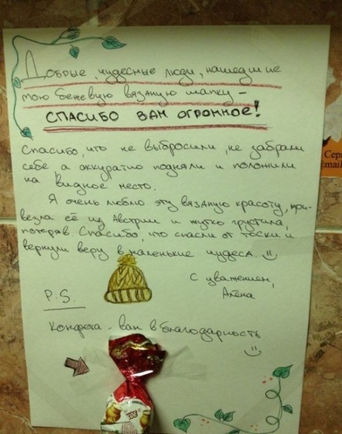 Добрые, чудесные люди, нашедшие
мою бежевую вязаную шапку –
СПАСИБО ВАМ ОГРОМНОЕ!
Спасибо, что не выбросили, не забрали
себе а аккуратно подняли и положили
на видное место.
Я очень люблю эту вязаную красоту, при-
везла её из Австрии и жутко грустила,
потеряв. Спасибо, что спасли от тоски и
вернули веру в маленькие чудеса. :)
С уважением,
Алёна
P.S.
Конфета – вам в благодарность
:)
Сер
mail